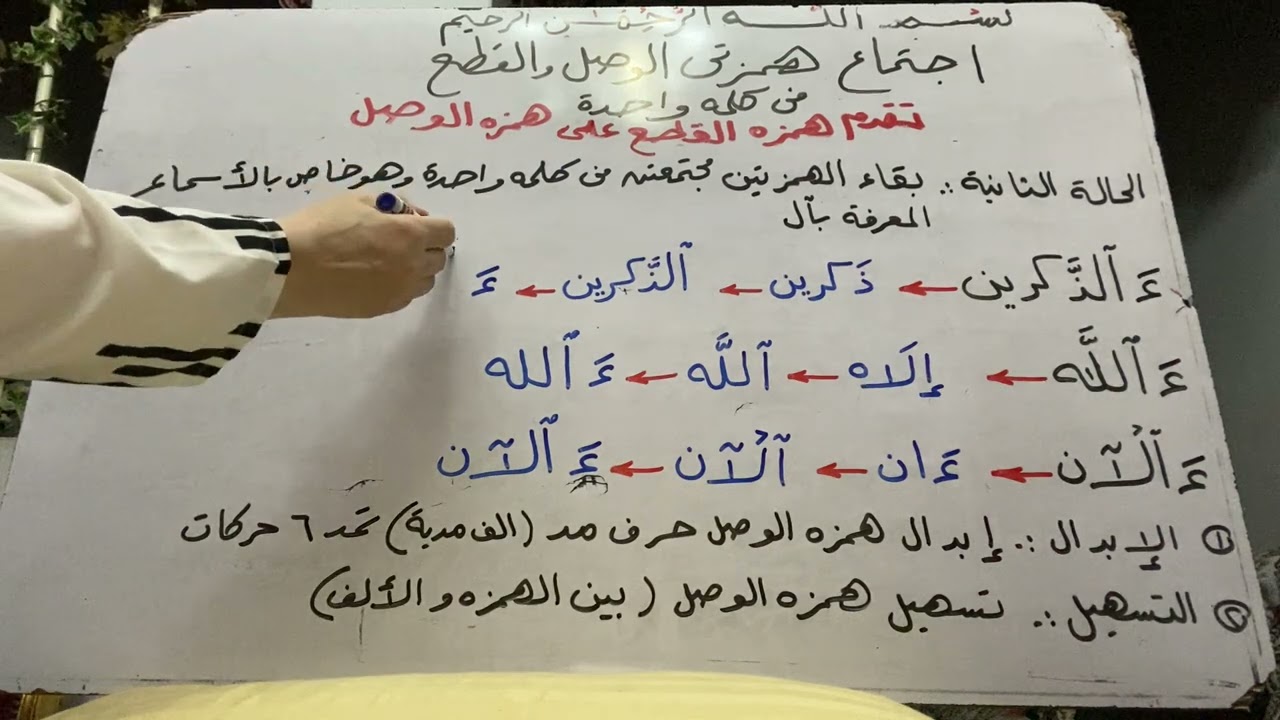 بسم اللـه الرحمـن الرحيم
اجتماع همزتى الوصل والقطع
فى كلمه واحدة
تقدم همزه القطع على همزه الوصل
الحالة الثانية :. بقاء الهمزيتين مجتمعتين فى كلمه واحدة وهو خاص بالأسماء
المعرفة بآل
ءَ ٱلذَّكرين ← ذَكرين ← ٱلذَّكرين ← ءَ
ءَ ٱللَّه ← إلَاه ← ٱللَّه ← ءَ ٱلله
ءَ ٱلْآن ← ءَان ← ٱلْآن ← ءَ ٱلآن
① الإبدال :. إبدال همزه الوصل حرف مد (الف مدية) تمد ٦ حركات
② التسهيل :. تسهيل همزه الوصل (بين الهمزه والألف)